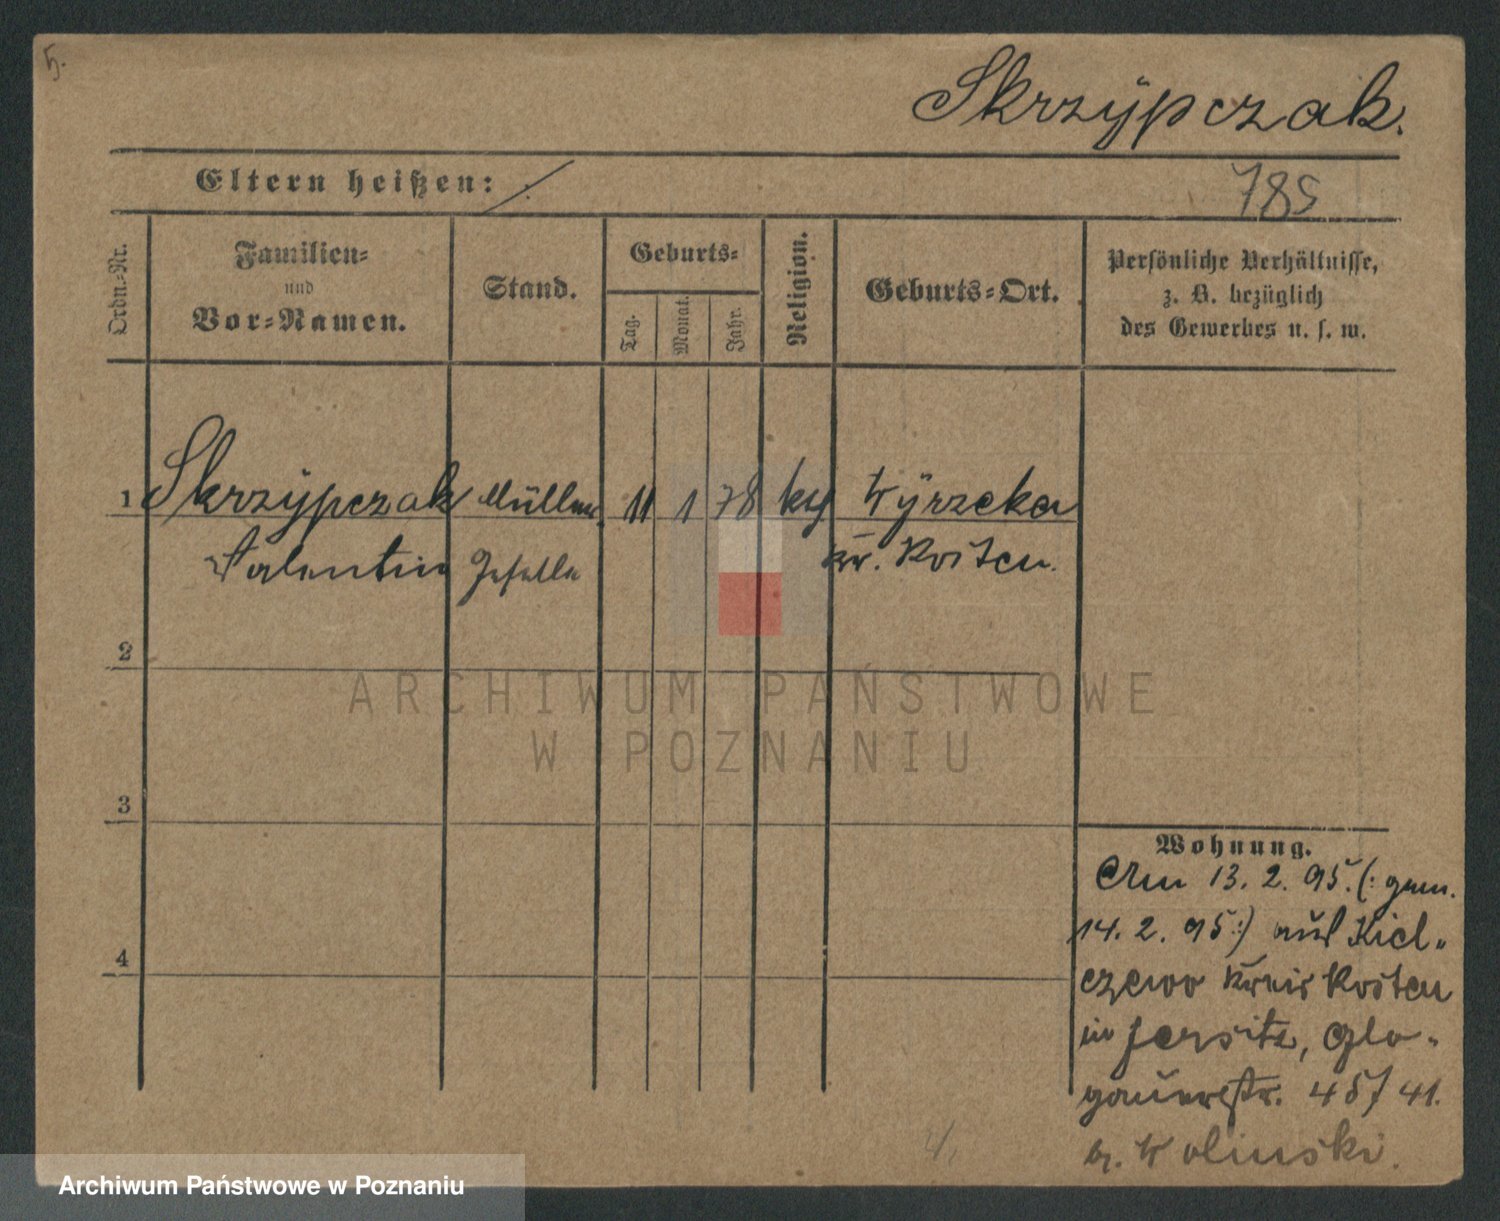 5.
Skrzÿpczak.
Eltern heißen: /.
785
Ordn.-Nr.
Familien-
und
Vor-Namen.
Stand.
Geburts-
Tag.
Monat.
Jahr.
Religion.
Geburts-Ort.
Persönliche Verhältnisse,
z. B. bezüglich
des Gewerbes u. s. w.
1 Skrzÿpczak Müller 11 1 78 kth Wÿrzeka
Valentin Geselle Kr. Kosten.
2
3
4
Wohnung.
Am 13. 2. 95. (: gem.
14. 2. 95 :) aus Kiel-
czewo Kreis Kosten
in Jersitz, Glo-
gauerstr. 41.
b. Wolinski.
ARCHIWUM PAŃSTWOWE
W POZNANIU
Archiwum Państwowe w Poznaniu